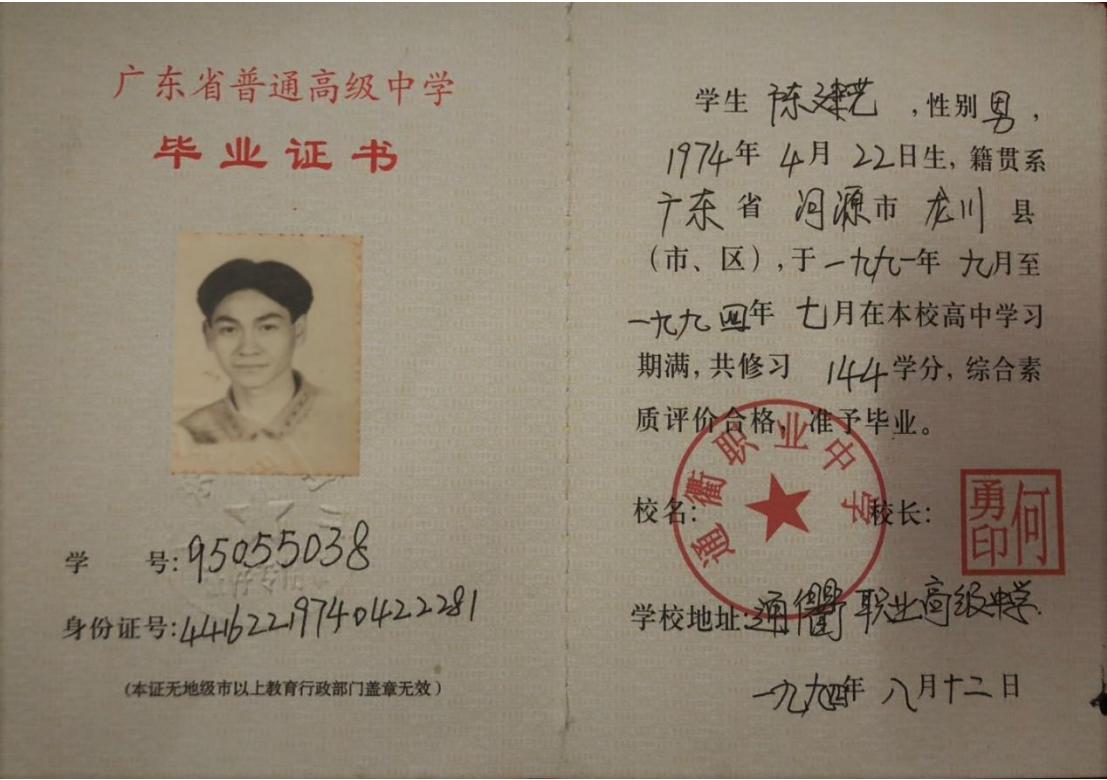 广东省普通高级中学
毕业证书
学 号:95055038
身份证号:441622197404222281
(本证无地级市以上教育行政部门盖章无效)
学生 陈建艺 ,性别男,
1974年 4月 22日生, 籍贯系
广东 省 河源市 龙川 县
(市、区), 于一九九一年 九月至
一九九四年 七月在本校高中学习
期满, 共修习 144学分, 综合素
质评价合格, 准予毕业。
通衢职业中学
校名: 校长:
何勇印
学校地址:通衢职业高级中学.
一九九四年 八月十二日